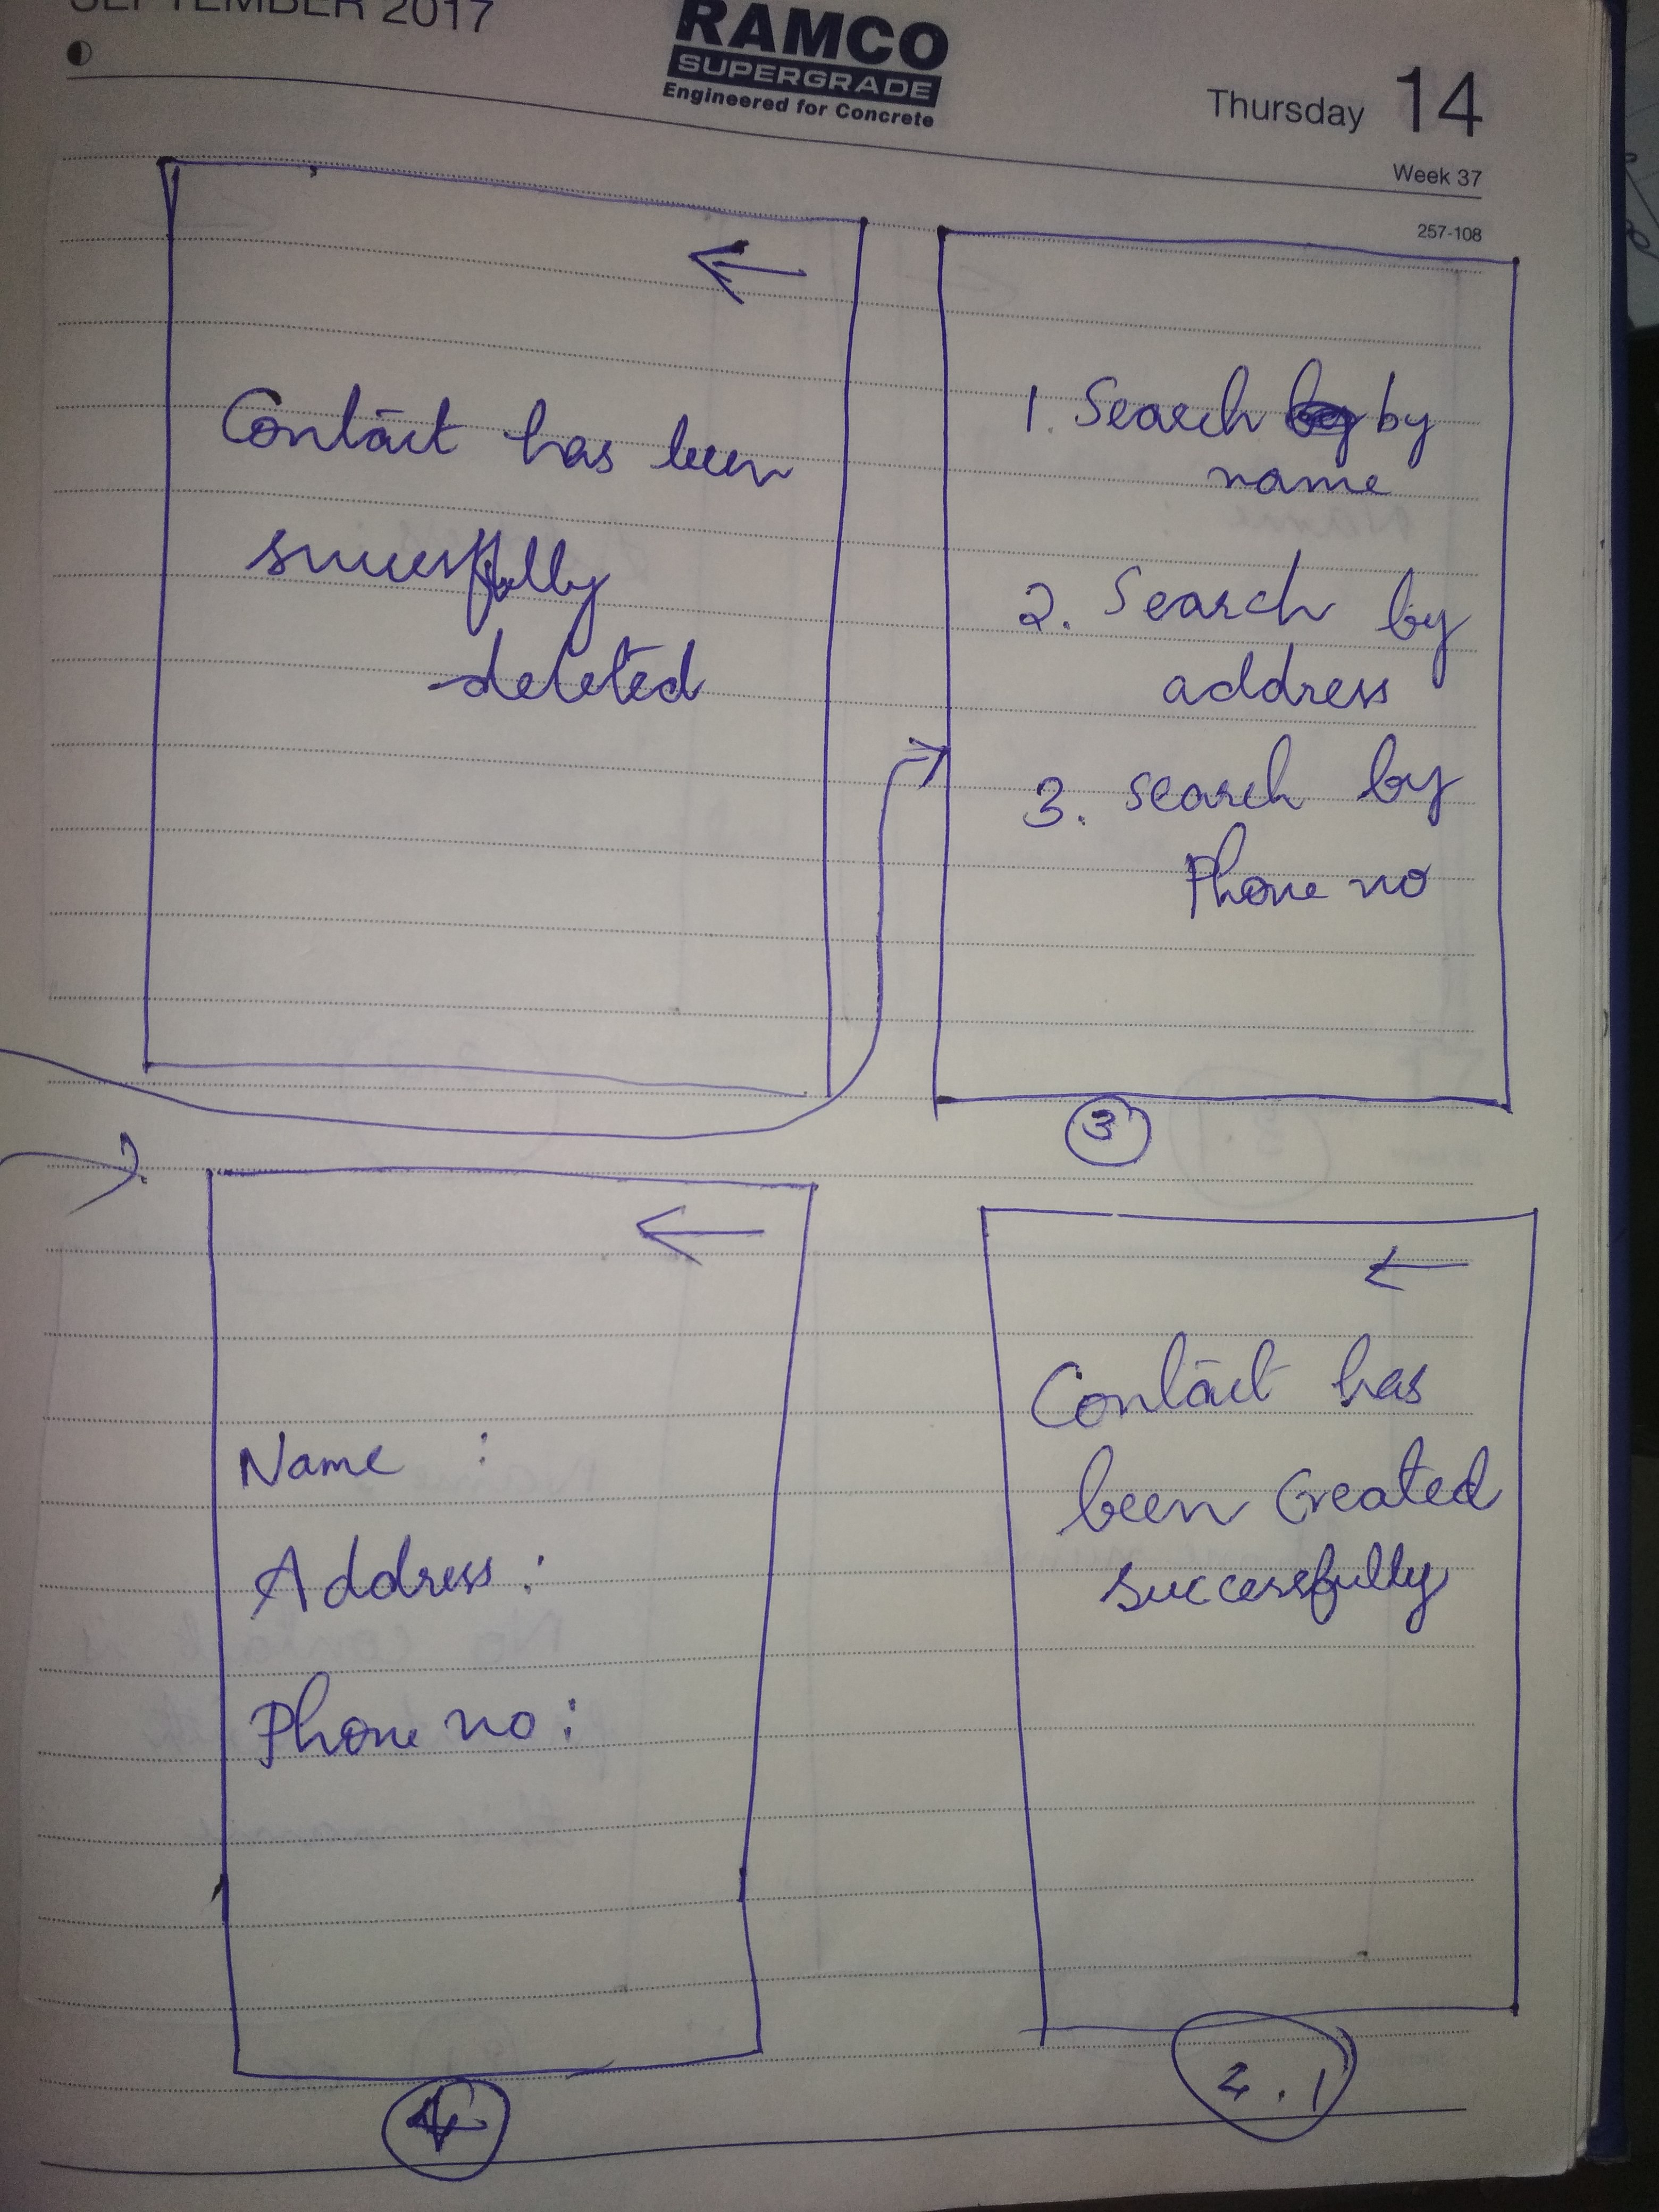 SEPTEMBER 2017
RAMCO
SUPERGRADE
Engineered for Concrete
Thursday 14
Week 37
257-108
Contact has been
successfully
deleted
1. Search by
name
2. Search by
address
3. search by
Phone no
3
Name :
Address :
Phone no :
4
Contact has
been Created
successfully
2.1